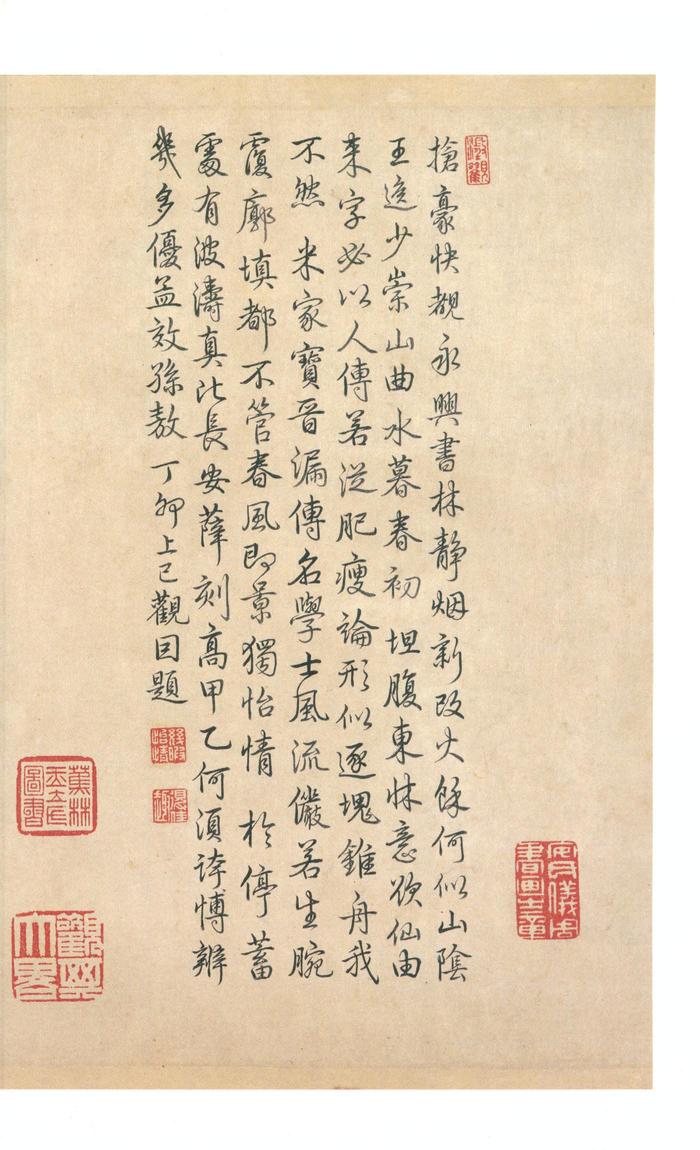 搶豪快覩永興書林靜烟新改火餘何似山陰
王逸少崇山曲水暮春初 坦腹東牀意欲仙由
來字必以人傳若從肥瘦論形似逐塊錐舟我
不然 米家寶晉漏傳名學士風流儼若生腕
覆廓填都不管春風即景獨怡情 於停蓄
處有波濤真比長安薛刻高甲乙何須誇博辯
幾多優孟效孫敖 丁卯上巳觀因題
幾暇怡情
蕉林
玉立氏
圖書
安儀周
書畫之章